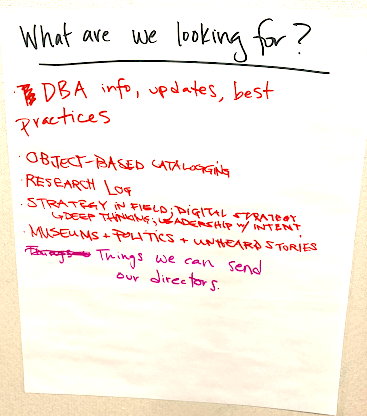 What are we looking for?
· DBA info, updates, best
practices
· OBJECT-BASED CATALOGGING
· RESEARCH LOG
· STRATEGY IN FIELD; DIGITAL STRATEGY
↳DEEP THINKING; LEADERSHIP W/ INTENT
· MUSEUMS + POLITICS + UNHEARD STORIES
Things we can send
our directors.